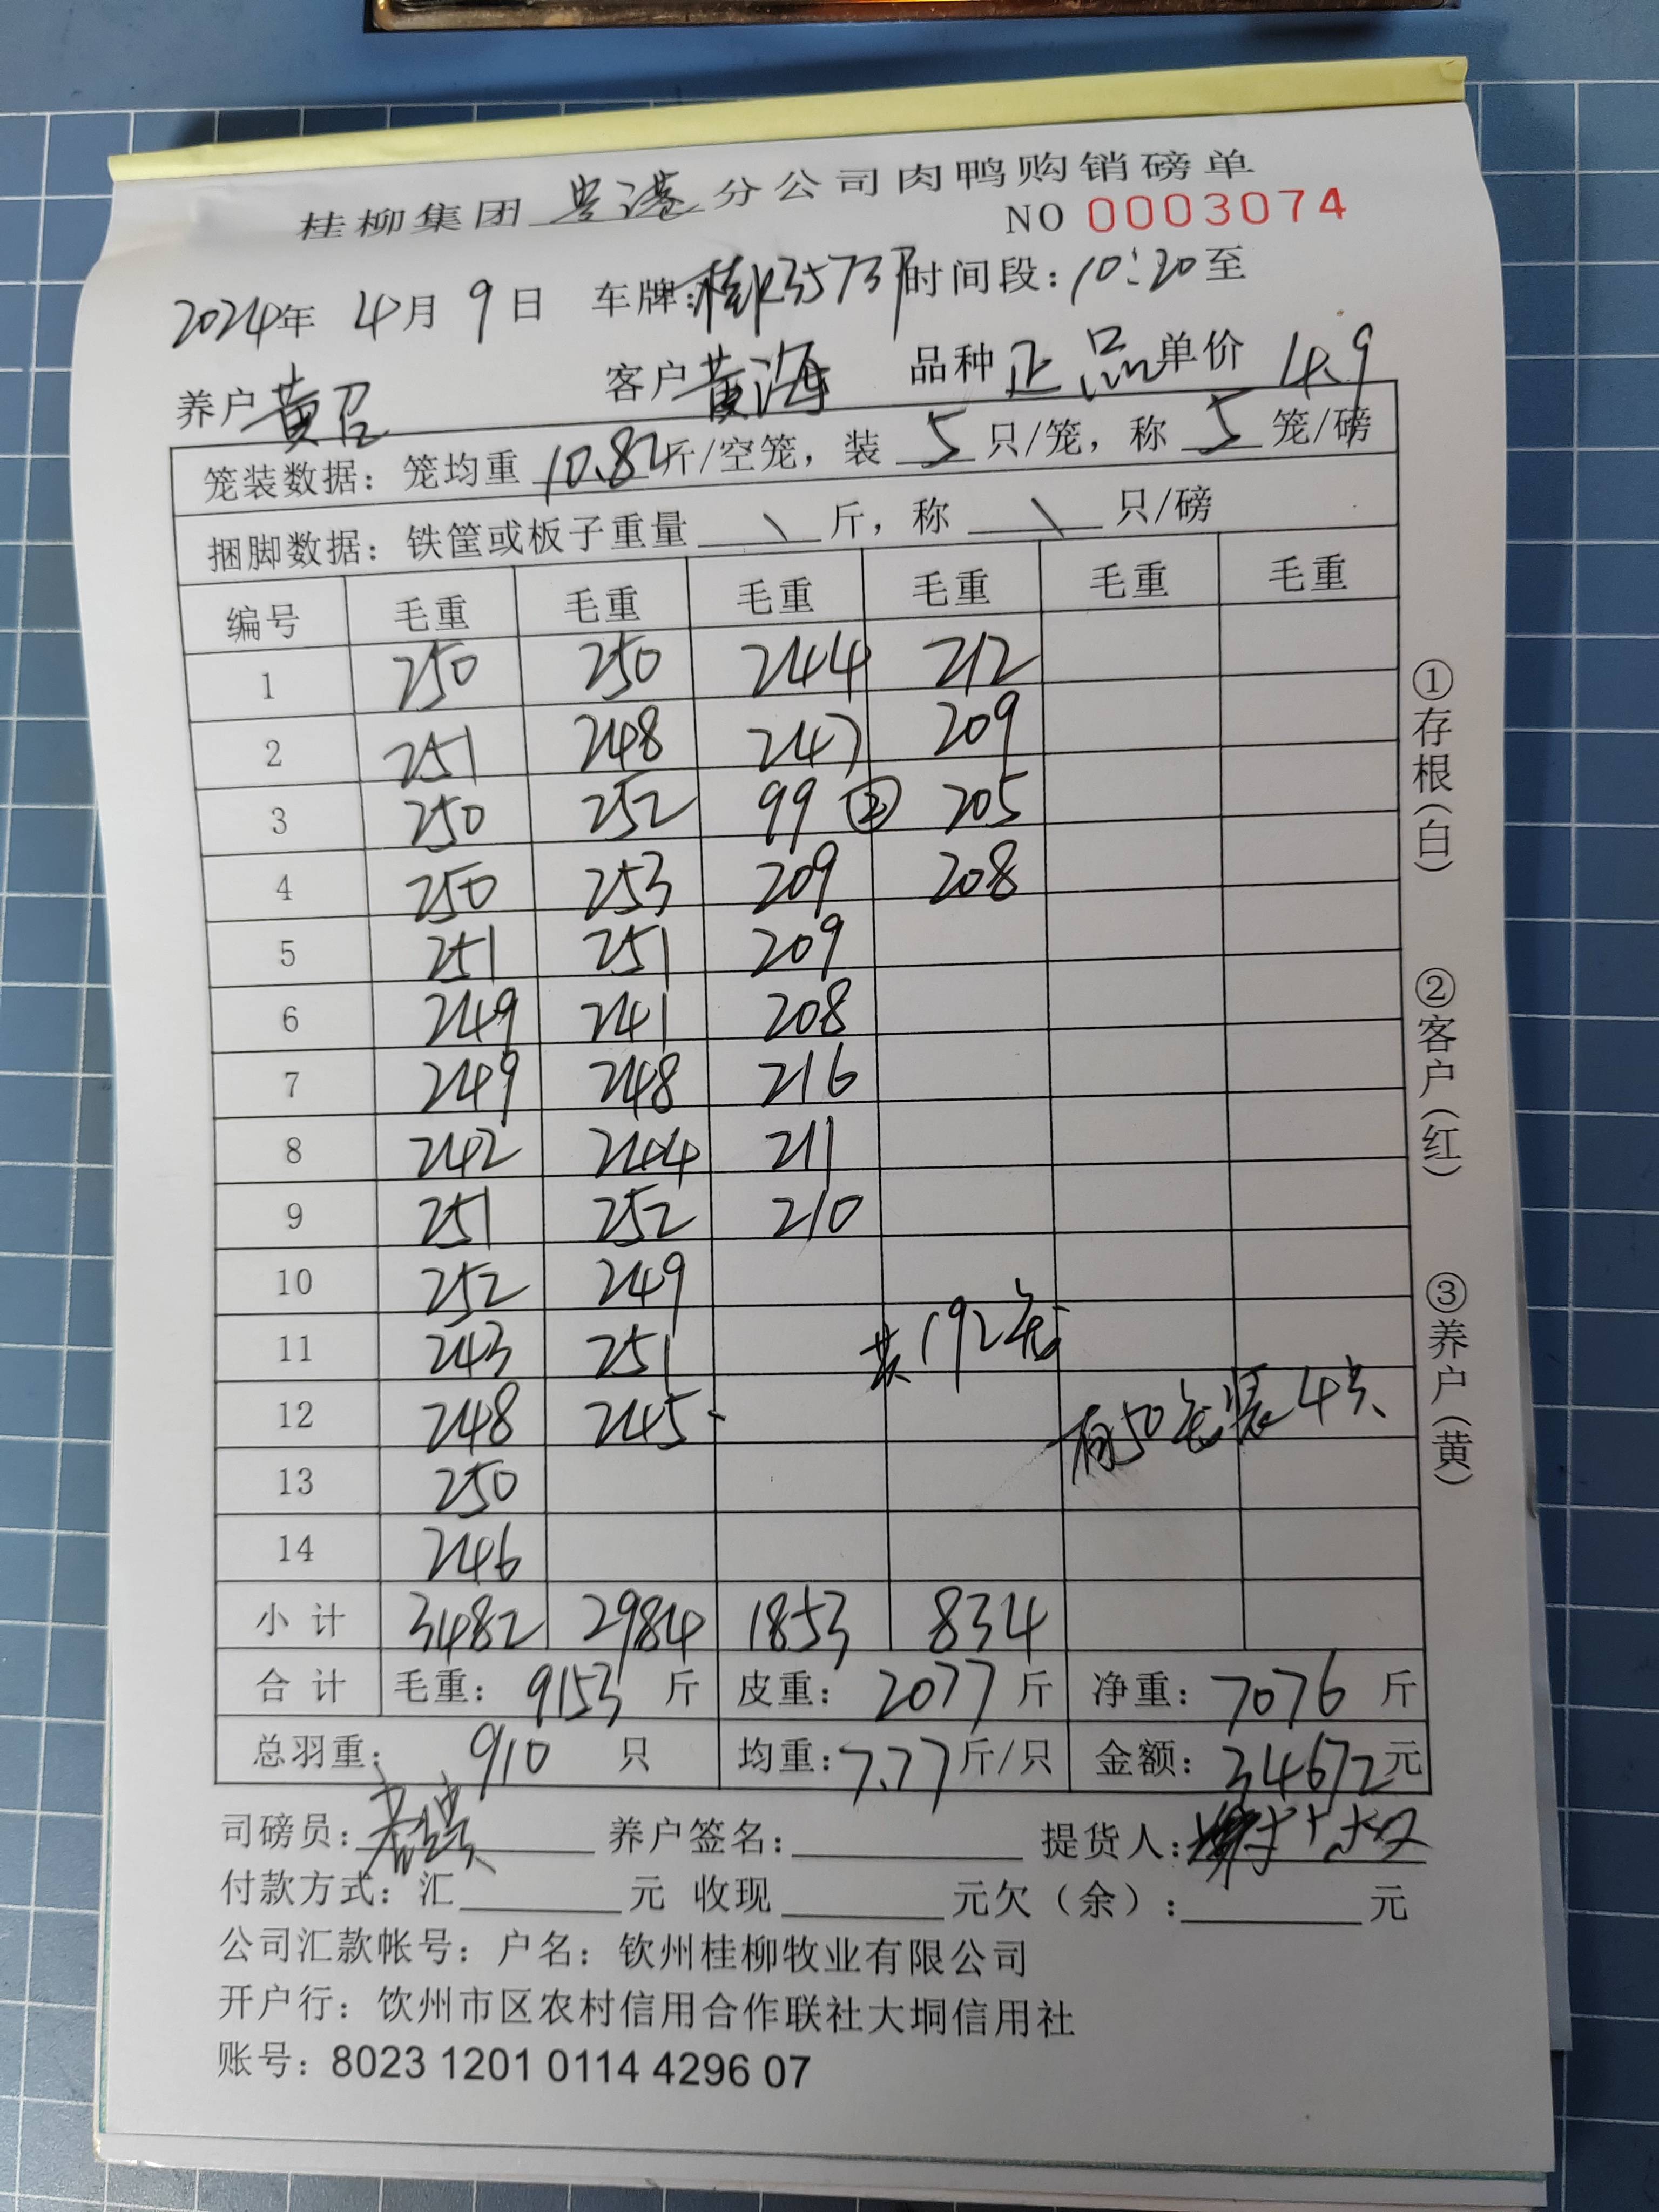 桂柳集团 贵港 分公司肉鸭购销磅单
NO 0003074
2024年 4月 9日 车牌:桂K3573 时间段:10:20至
养户 黄召 客户 黄海 品种 正品 单价 4.9
笼装数据:笼均重 10.82 斤/空笼,装 5 只/笼,称 5 笼/磅
捆脚数据:铁筐或板子重量 \ 斤,称 \ 只/磅
编号 毛重 毛重 毛重 毛重 毛重 毛重
1 250 250 244 212
2 251 248 247 209
3 250 252 99 ② 205
4 250 253 209 208
5 251 251 209
6 249 241 208
7 249 248 216
8 242 244 211
9 251 252 210
10 252 249
11 243 251 共192笼
12 248 245 有50笼装4只
13 250
14 246
小计 3482 2984 1853 834
合计 毛重:9153 斤 皮重:2077 斤 净重:7076 斤
总羽重:910 只 均重:7.77 斤/只 金额:34672元
司磅员: 养户签名: 提货人:
付款方式:汇 元 收现 元欠(余): 元
公司汇款帐号:户名:钦州桂柳牧业有限公司
开户行:钦州市区农村信用合作联社大垌信用社
账号:8023 1201 0114 4296 07
①存根(白)
②客户(红)
③养户(黄)